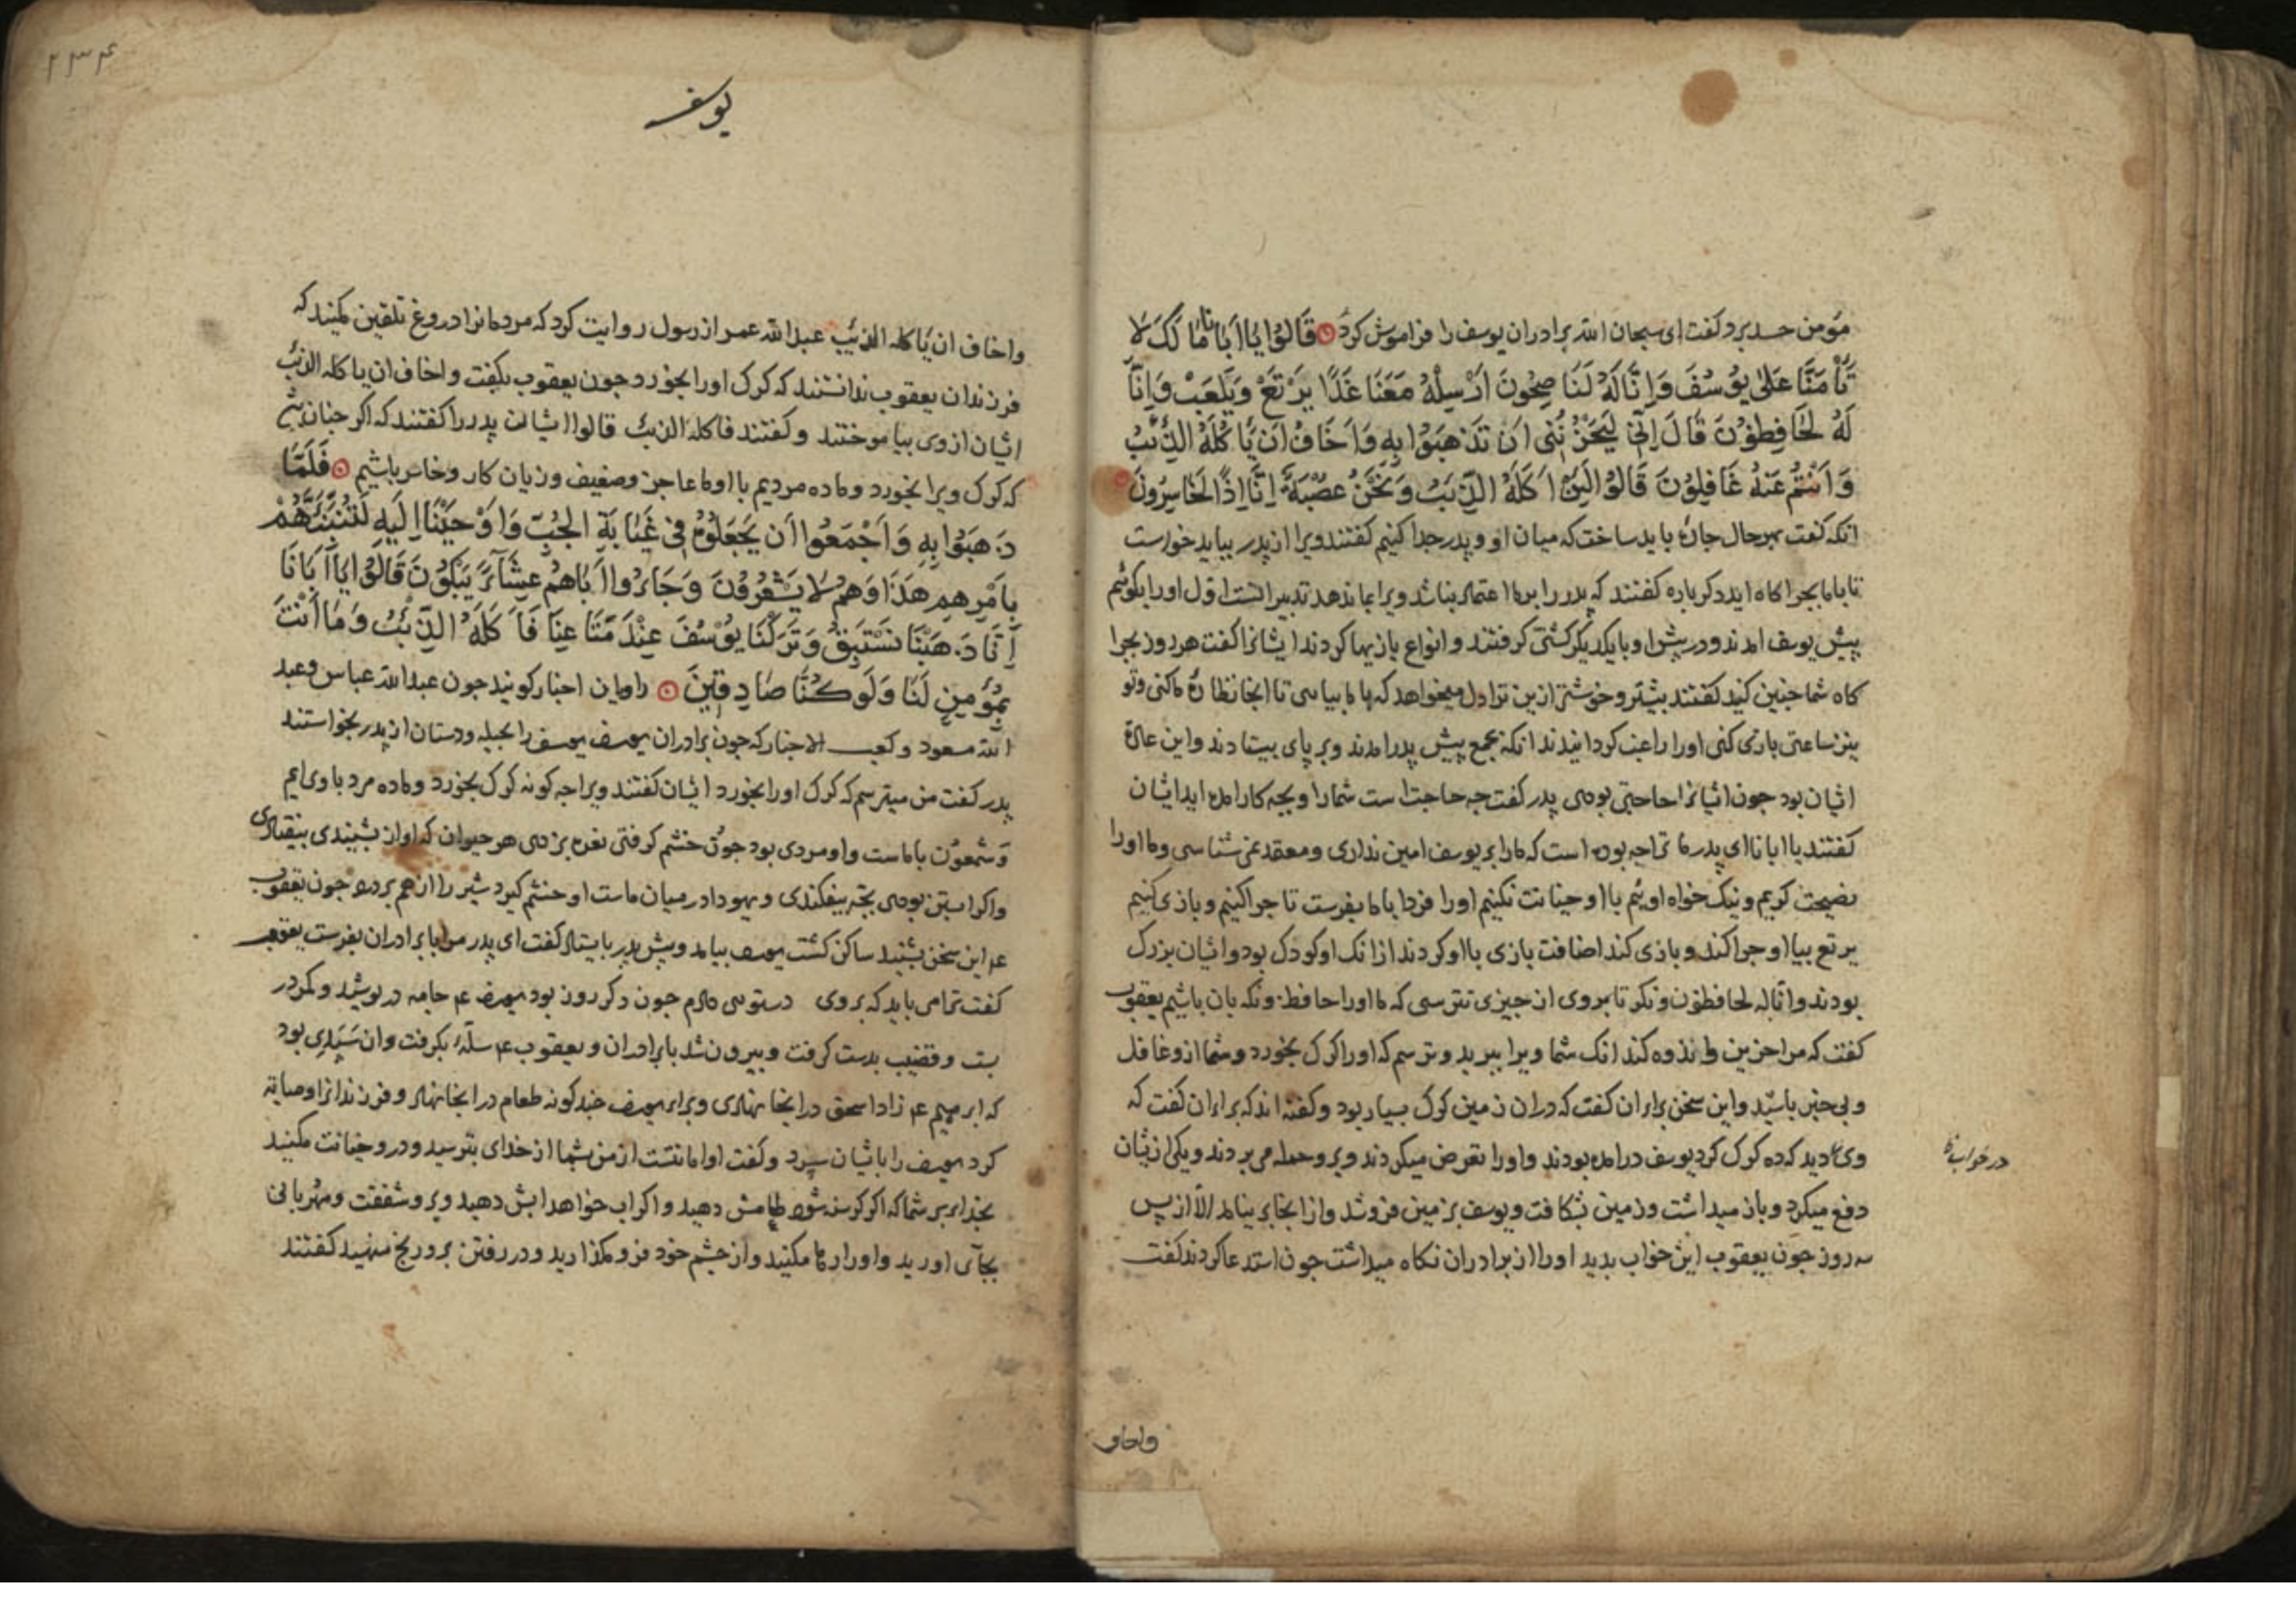 مؤمن حسد برد کفت ای سبحان الله برادران یوسف را فراموش کرد قَالُوا یَا اَبَانَا مَا لَکَ لَا
تَأْمَنَّا عَلیٰ یُوسُفَ وَاِنَّا لَهُ لَنَا صِحُونَ اَرْسِلْهُ مَعَنَا غَدًا یَرْتَعْ وَیَلْعَبْ وَاِنَّا
لَهُ لَحَافِظُونَ قَالَ اِنِّی لَیَحْزُنُنِی اَنْ تَذْهَبُوا بِهِ وَاَخَافُ اَنْ یَاکُلَهُ الذِّئْبُ
وَاَنْتُمْ عَنْهُ غَافِلُونَ قَالُوا لَئِنْ اَکَلَهُ الذِّئْبُ وَنَحْنُ عُصْبَةٌ اِنَّا اِذًا لَخَاسِرُونَ
انکه کفت بهرحال جارهٔ باید ساخت که میان او و پدر جدا کنیم کفتند ویرا از پدر بباید خواست
تا باما بجراکاه اید دکرباره کفتند که پدر را برما اعتماد نباشد ویرا بما ندهد تدبیر انست اول اورا بکوئیم
پیش یوسف امدند ودر پیش او با یکدیکر کشتی کرفتند و انواع بازیها کردند ایشانرا کفت هر روز بجرا
کاه شما جنین کنید کفتند بیشتر وخوشتر ازین ترا دل میخواهد که باما بیایی تا انجا نظارهٔ ما کنی وتو
نیز ساعتی بازی کنی اورا راغب کردانیدند انکه بجمع پیش پدر امدند وبر پای بیستادند واین عادة
ایشان بود جون ایشانرا حاجتی بودی پدر کفت جه حاجت است شمارا وبجه کار امده اید ایشان
کفتند یا ابانا ای پدر ما ترا جه بوده است که مارا بر یوسف امین نداری ومعتمد نمی شناسی وما اورا
نصیحت کریم ونیک خواه اوئیم با او خیانت نکنیم اورا فردا باما بفرست تا جرا کنیم وبازی کنیم
یرتع بیا او جرا کند وبازی کند اضافت بازی با او کردند از انک او کودک بود وایشان بزرک
بودند وانا له لحافظون ونکر تا بروی از جیزی نترسی که ما اورا حافظ ونکه بان باشیم یعقوب
کفت که مرا حزین واندوه کند انک شما ویرا ببرید وترسم که اورا کرک بخورد وشما ازو غافل
وبی خبر باشید واین سخن برای ان کفت که دران زمین کرک بسیار بود وکفته اند که برای ان کفت که
وی دید که ده کرک کرد یوسف در امده بودند واورا تعرض میکردند وبرو حمله می بردند ویکی ازیشان
دفع میکرد وباز میداشت وزمین بشکافت ویوسف بزمین فروشد واز انجا بر نیامد الا از پس
سه روز جون یعقوب این خواب بدید اورا از برادران نکاه میداشت جون استدعا کردند کفت
در خواب
واخاف
۲۳۴
یوسف
واخاف ان یاکله الذئب عبدالله عمر از رسول روایت کرد که مردمانرا دروغ تلقین مکنید که
فرزندان یعقوب ندانستند که کرک اورا بخورد جون یعقوب بکفت واخاف ان یاکله الذئب
ایشان از وی بیاموختند وکفتند فاکله الذئب قالوا ایشان پدر را کفتند که اکر جنان شی
که کرک ویرا بخورد وماده مردیم با او ما عاجز وضعیف وزیان کار وخاسر باشیم فَلَمَّا
ذَهَبُوا بِهِ وَاَجْمَعُوا اَنْ یَجْعَلُوهُ فِی غَیَابَةِ الْجُبِّ وَاَوْحَیْنَا اِلَیْهِ لَتُنَبِّئَنَّهُمْ
بِاَمْرِهِمْ هٰذَا وَهُمْ لَا یَشْعُرُونَ وَجَاؤُا اَبَاهُمْ عِشَآءً یَبْکُونَ قَالُوا یَا اَبَانَا
اِنَّا ذَهَبْنَا نَسْتَبِقُ وَتَرَکْنَا یُوسُفَ عِنْدَ مَتَاعِنَا فَاَکَلَهُ الذِّئْبُ وَمَا اَنْتَ
بِمُؤْمِنٍ لَنَا وَلَوْ کُنَّا صَادِقِینَ راویان اخبار کویند جون عبدالله عباس وعبد
الله مسعود وکعب الاحبار که جون برادران یوسف یوسف را بحیله ودستان از پدر بخواستند
پدر کفت من میترسم که کرک اورا بخورد ایشان کفتند ویرا جه کونه کرک بخورد وماده مرد با وی ایم
وشمعون با ماست واو مردی بود جون خشم کرفتی نعره بزدی هر حیوان که اواز بشنیدی بیفتادی
واکر ابستن بودی بچه بیفکندی ویهودا در میان ماست او خشم کیرد شیر را از هم بردرد جون یعقوب
ع‍م این سخن بشنید ساکن کشت یوسف بیامد وپیش پدر بایستاد کفت ای پدر مرا با برادران بفرست یعقوب
کفت ترا می باید که بروی دستوری دادم جون دکر روز بود یوسف ع‍م جامه در پوشید وکمر در
بست وقضیب بدست کرفت وبیرون شد با برادران ویعقوب ع‍م سلهٔ بکرفت وان سبدی بود
که ابرهیم ع‍م زاد اسحق در انجا نهادی وبرای یوسف جند کونه طعام در انجا نهاد وفرزندانرا وصایة
کرد یوسف را بایشان سپرد وکفت او امانتست از من بشما از خدای بترسید ودرو خیانت مکنید
بخدای بر شما که اکر کرسنه شود طعامش دهید واکر اب خواهد ابش دهید وبرو شفقت ومهربانی
بجآی اورید واورا رها مکنید واز جشم خود فرو مکذارید ودر رفتن برو رنج منهید کفتند